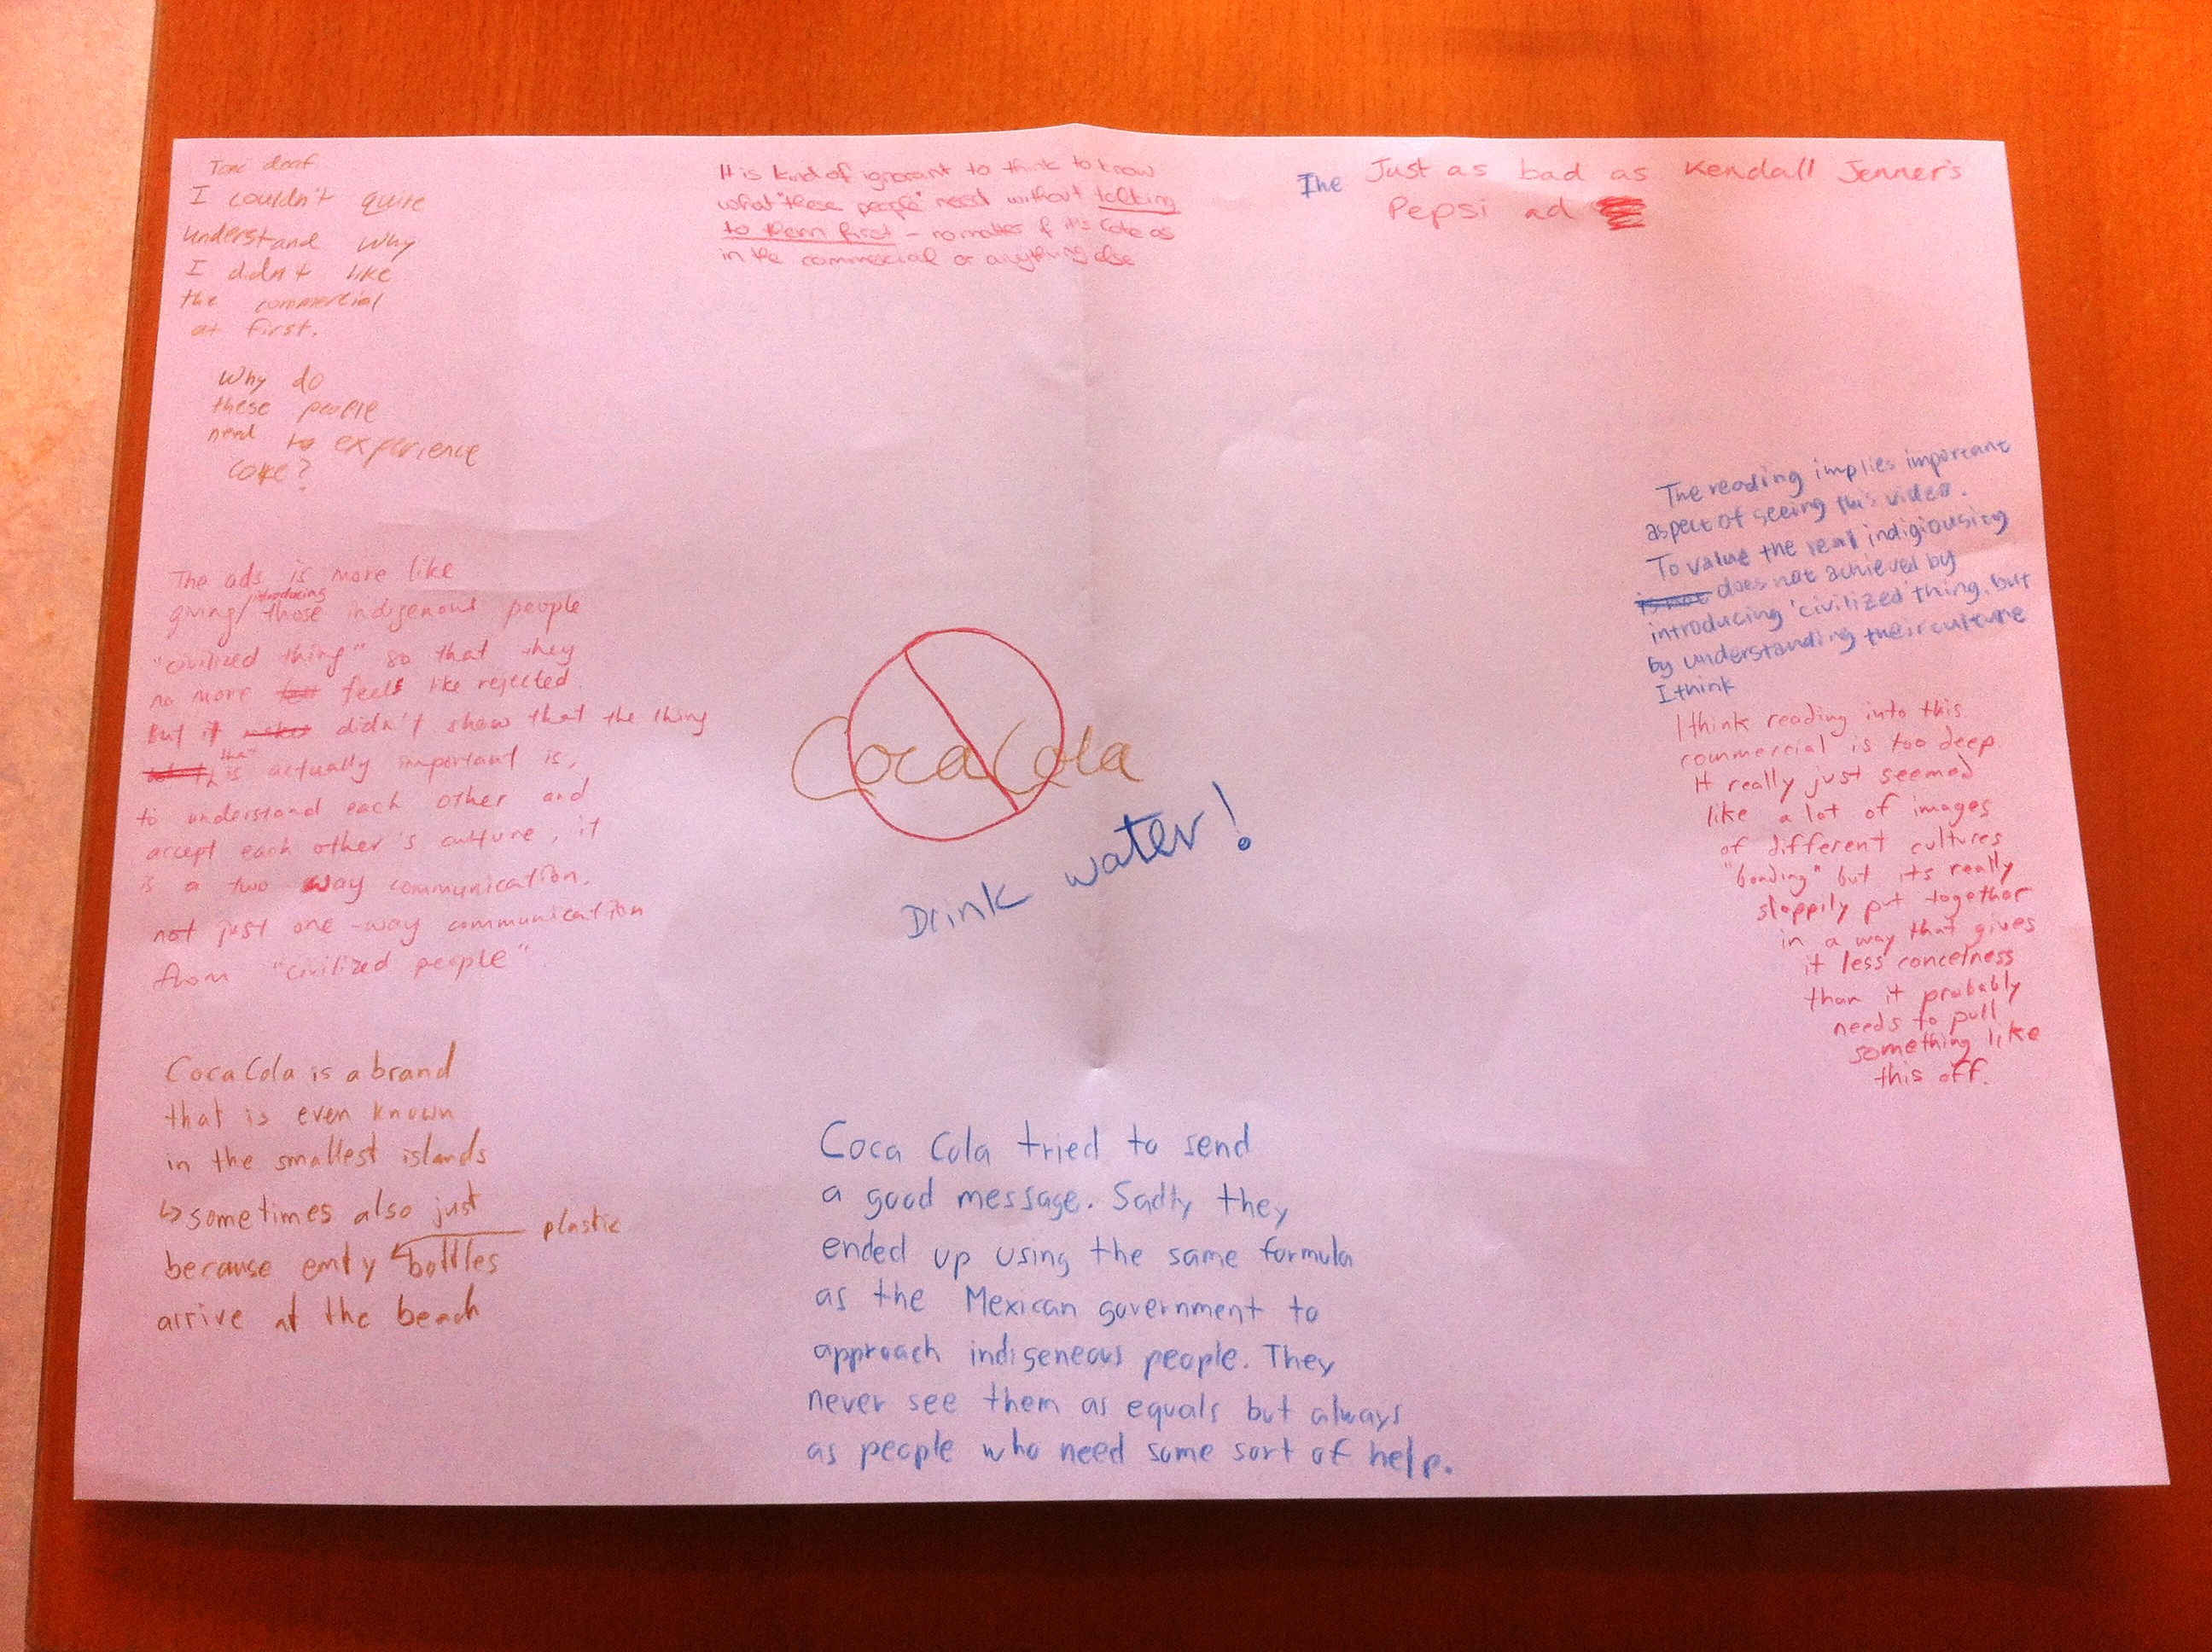 Tone deaf
I couldn't quite
understand why
I didn't like
the commercial
at first.
Why do
these people
need to experience
coke?
It is kind of ignorant to think to know
what "these people" need without talking
to them first - no matter if it's Coke as
in the commercial or anything else
The
Just as bad as Kendall Jenner's
Pepsi ad
The ads is more like
giving/introducing those indigenous people
"civilized thing" so that they
no more feels like rejected.
But it didn't show that the thing
that is actually important is,
to understand each other and
accept each other's culture, it
is a two way communication.
not just one-way communication
from "civilized people".
Coca Cola
Drink water!
The reading implies important
aspect of seeing this video.
To value the real indigiousity
is not does not achieved by
introducing 'civilized' thing, but
by understanding their culture
I think
I think reading into this
commercial is too deep.
It really just seemed
like a lot of images
of different cultures
"bonding" but its really
sloppily put together
in a way that gives
it less concetness
than it probably
needs to pull
something like
this off.
Coca Cola is a brand
that is even known
in the smallest islands
↳ sometimes also just
plastic
because emty bottles
arrive at the beach
Coca Cola tried to send
a good message. Sadly they
ended up using the same formula
as the Mexican government to
approach indigeneous people. They
never see them as equals but always
as people who need some sort of help.